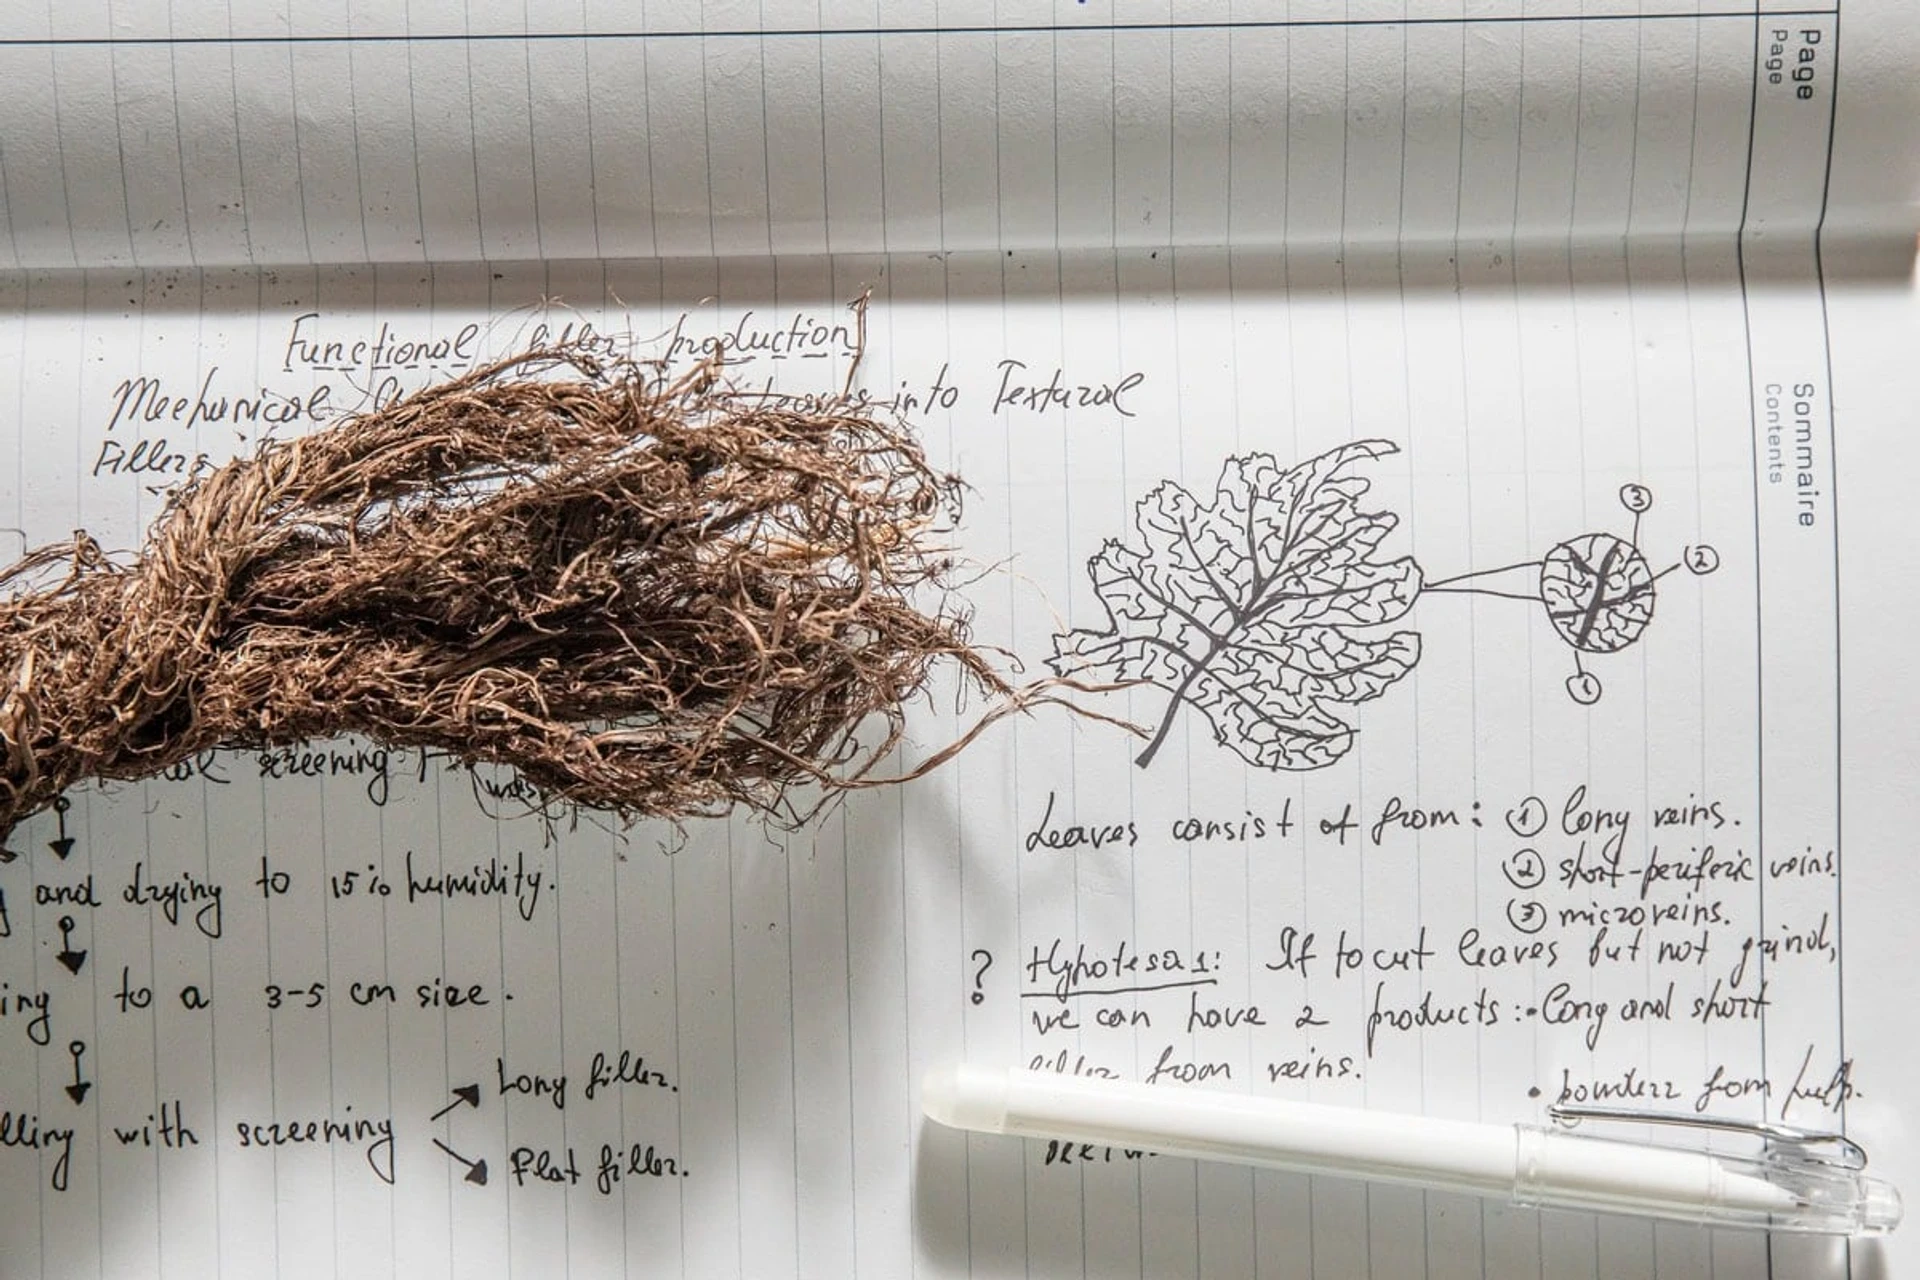 Page
Page
Sommaire
Contents
Functional filler production
Mechanical into Textural
Fillers
screening
and drying to 15% humidity.
to a 3-5 cm size.
with screening
Long filler.
Flat filler.
3
2
1
Leaves consist of from: 1 long veins.
2 short-periferic veins.
3 microveins.
? Hypotesa 1: If to cut leaves but not grind,
we can have 2 products: • Long and short
filler from veins.
• powderr from pulp.